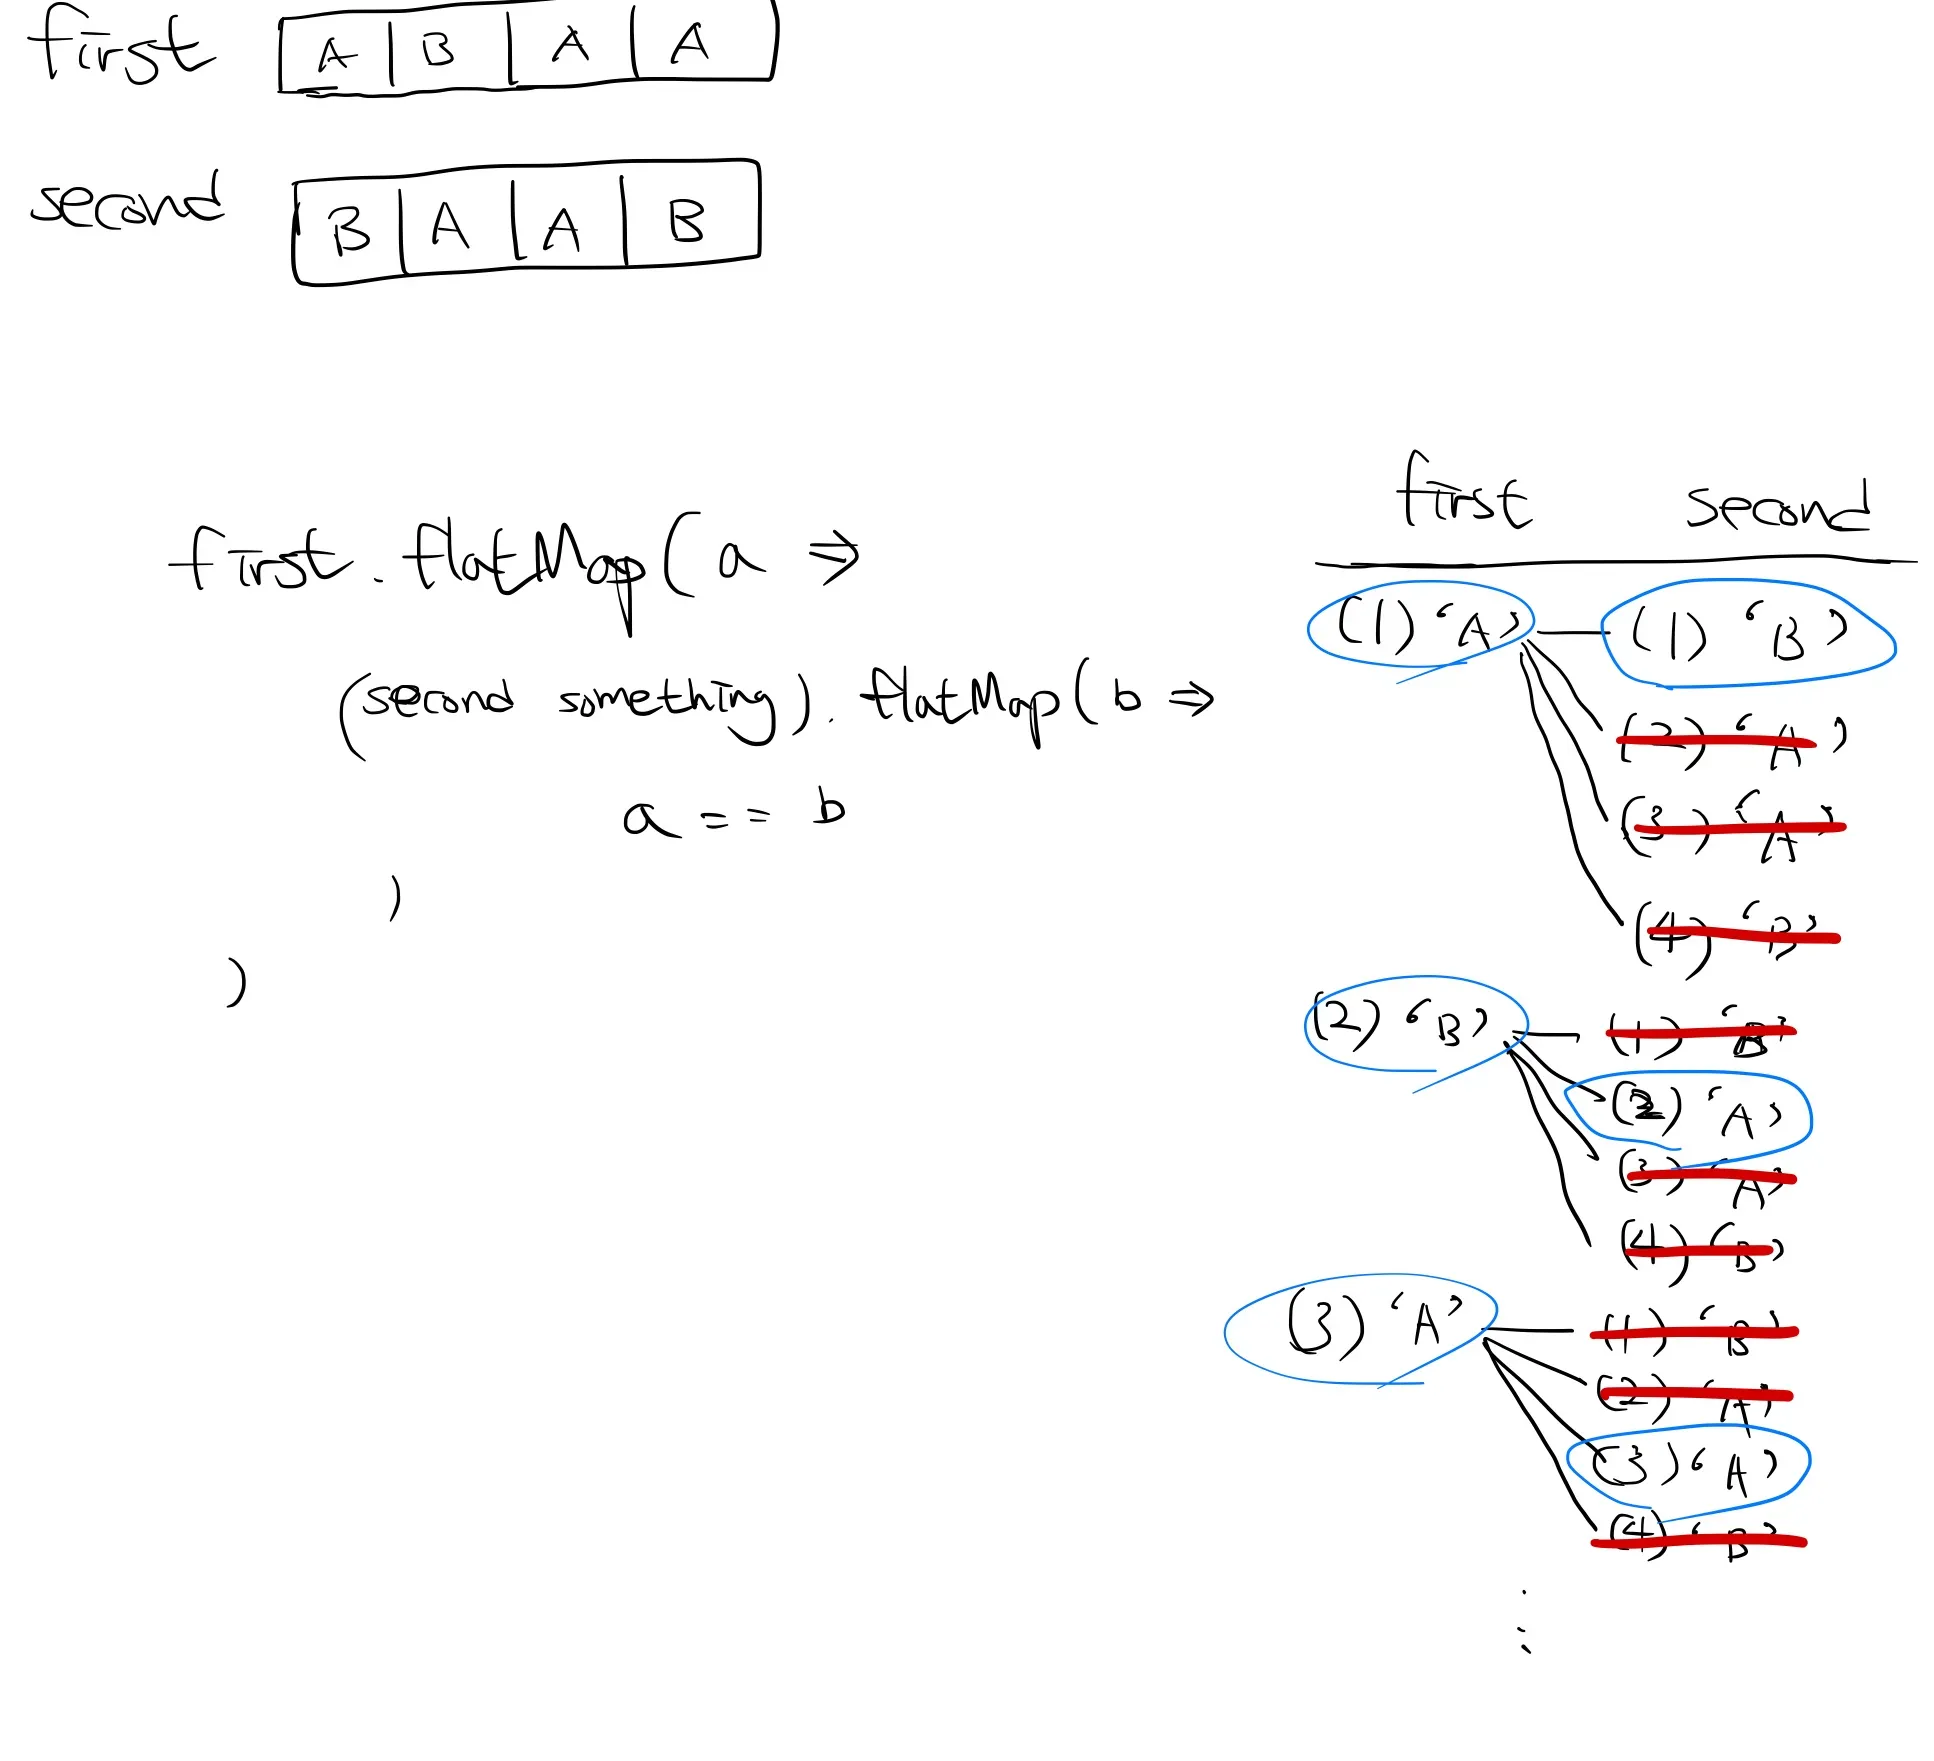 first A B A A
second B A A B
first. flatMap(a ⇒
(second something). flatMap(b ⇒
a == b
)
)
first second
(1) ‘A’ (1) ‘B’
(2) ‘A’
(3) ‘A’
(4) ‘B’
(2) ‘B’ (1) ‘B’
(2) ‘A’
(3) ‘A’
(4) ‘B’
(3) ‘A’ (1) ‘B’
(2) ‘A’
(3) ‘A’
(4) ‘B’
⋮